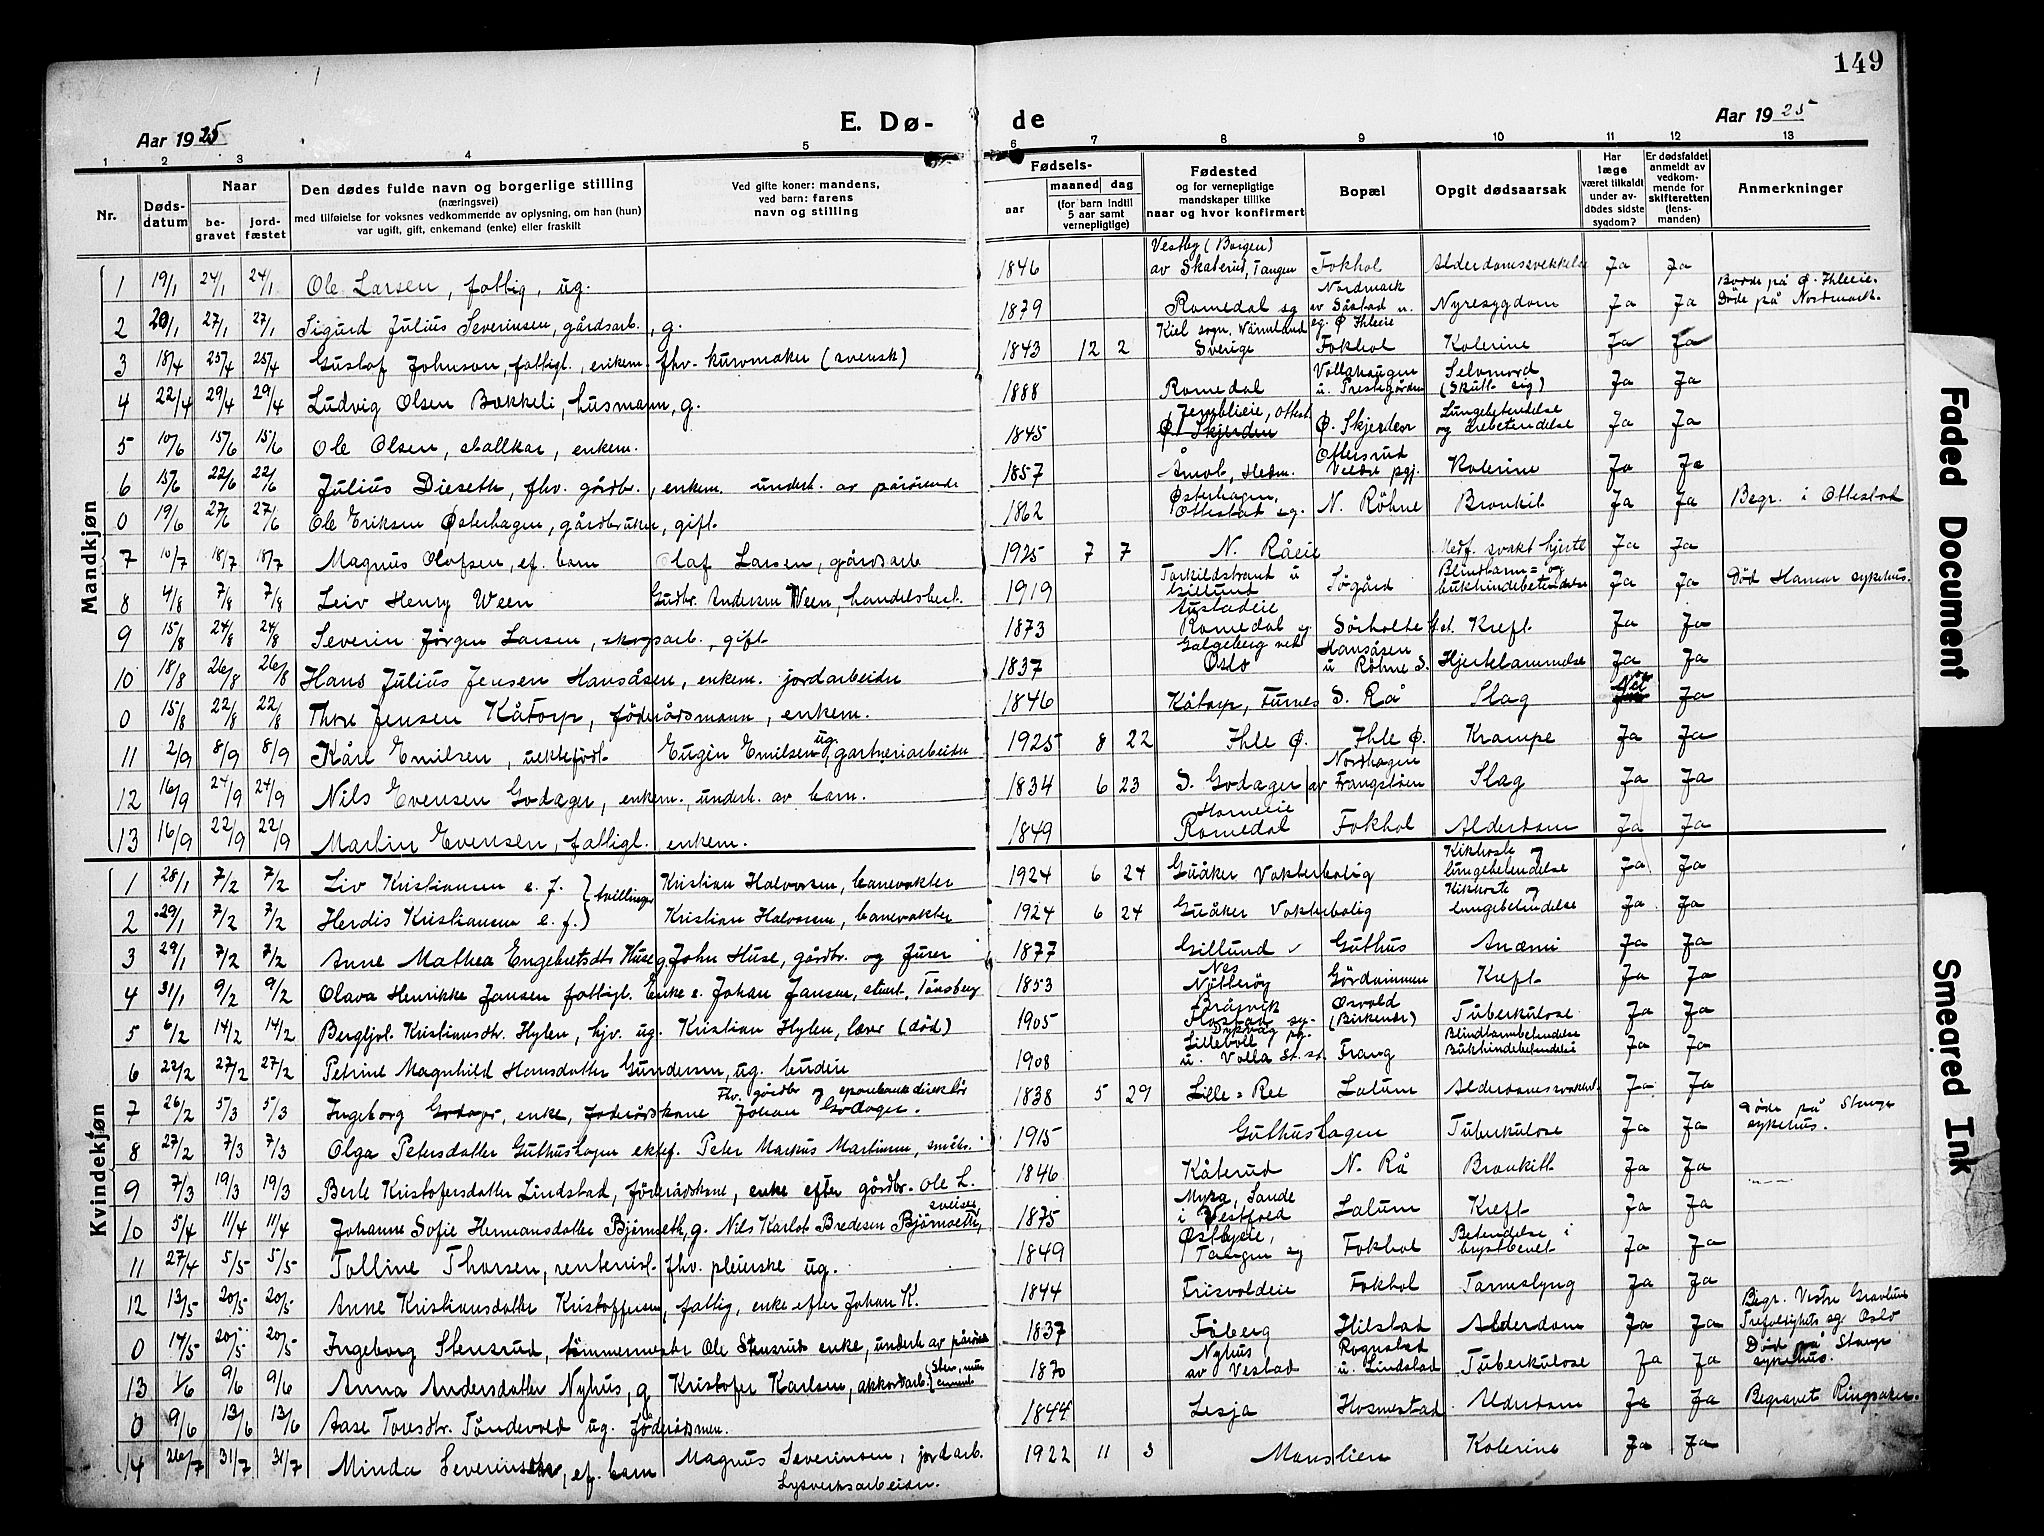 149
Aar 1925 E. Dø- de Aar 1925
1 2 3 4 5 6 7 8 9 10 11 12 13
Nr. Døds-datum Naar be-gravet jord-fæstet Den dødes fulde navn og borgerlige stilling (næringsvei) med tilføielse for voksnes vedkommende av oplysning, om han (hun) var ugift, gift, enkemand (enke) eller fraskilt Ved gifte koner: mandens, ved barn: farens navn og stilling Fødsels- aar maaned dag (for barn indtil 5 aar samt vernepligtige) Fødested og for vernepligtige mandskaper tillike naar og hvor konfirmert Bopæl Opgit dødsaarsak Har læge været tilkaldt under av-dødes sidste sygdom? Er dødsfaldet anmeldt av vedkom-mende for skifteretten (lens-manden) Anmerkninger
Mandkjøn
1 19/1 24/1 24/1 Ole Larsen, fattig, ug. 1846 Vestby (Borgen) av Skaterud, Tangen Fokhol Alderdomssvekkelse Ja Ja
2 20/1 27/1 27/1 Sigurd Julius Severinsen, gårdsarb., g. 1879 Romedal sg Nordmark av Såstad u. eg. Ø Ihleeie Nyresygdom Ja Ja Bodde på Ø. Ihleeie. Døde på Nordmark.
3 18/4 25/4 25/4 Gustaf Johnson, fattigl., enkem. fhv. kurvmaker (svensk) 1843 12 2 Kiel sogn, Värmland Sverige Fokhol Kolerine Ja Ja
4 22/4 29/4 29/4 Ludvig Olsen Bakkeli, husmann, g. 1888 Romedal Vollshaugen u. Prestegården Selvmord (Skutt sig) Ja Ja
5 10/6 15/6 15/6 Ole Olsen, stallkar, enkem. 1845 Jemblieie, Ottest. Ø. Skjerden Ø. Skjerden Lungebetendelse og årebetendelse Ja Ja
6 15/6 22/6 22/6 Julius Dieseth, fhv. gårdbr., enkem. underh. av pårørende 1857 Åmot, Hedm. Ottersrud Veldre pgj. Kolerine Ja Ja
0 19/6 27/6 27/6 Ole Eriksen Østerhagen, gårdbruker, gift 1862 Østerhagen, Ottestad sg. N. Röhne Bronkit Ja Ja Begr. i Ottestad
7 10/7 18/7 18/7 Magnus Olafsen, ef. barn Olaf Larsen, gårdsarb 1925 7 7 N. Råeie Medf. svakt hjerte Ja Ja
8 4/8 7/8 7/8 Leiv Henry Ween Gudbr. Andersen Ween, handelsbest. 1919 Torkildstrand u Gillund Sogård Blindtarm= og bukhindebetendelse Ja Ja Död Hamar sykehus.
9 15/8 24/8 24/8 Severin Jørgen Larsen, skogsarb., gift 1873 Romedal sg Sörholtet Kreft Ja Ja
10 18/8 26/8 26/8 Hans Julius Jensen Hansåsen, enkem. jordarbeider 1837 Galgeberg ved Oslo Hansåsen u Röhne S. Hjertelammelse Ja Ja
0 15/8 22/8 22/8 Thore Jensen Kåtorp, föderådsmann, enkem. 1846 Kåtorp, Furnes S. Rå Slag Nei Ja
11 2/9 8/9 8/9 Kåre Emilsen, uektefödt Eugen Emilsen ug. gartneriarbeider 1925 8 22 Ihle Ø. Ihle Ø. Krampe Ja Ja
12 16/9 24/9 24/9 Nils Evensen Godager, enkem. underh. av barn. 1834 6 23 S. Godager Nordhagen av Frangstöen Slag Ja Ja
13 16/9 22/9 22/9 Martin Evensen, fattigl. enkem. 1849 Horneeie Romedal Fokhol Alderdom Ja Ja
Kvindekjøn
1 28/1 7/2 7/2 Liv Kristiansen e. f. tvillinger Kristian Halvorsen, banevokter 1924 6 24 Guåker Vokterbolig Kikhoste og lungebetendelse Ja Ja
2 29/1 7/2 7/2 Herdis Kristiansen e. f. Kristian Halvorsen, banevokter 1924 6 24 Guåker Vokterbolig Kikhoste og lungebetendelse Ja Ja
3 29/1 7/2 7/2 Anne Mathea Engebretsdtr Huse g. John Huse, gårdbr. og furer 1877 Gillund Guthus Anæmi Ja Ja
4 31/1 9/2 9/2 Olava Henrikke Jansen fattigl. Enke e. Johan Jansen, stuert, Tönsberg 1853 Nes Nötteröy Gördammen Kreft Ja Ja
5 6/2 14/2 14/2 Bergljot Kristiansdtr. Hylen, hjv. ug. Kristian Hylen, lærer (död) 1905 Flostad sg. Dypvåg pg. Osvold (Birkener) Tuberkulose Ja Ja
6 22/2 27/2 27/2 Petrine Magnhild Hansdatter Gundersen, ug. budeie 1908 Lilleboll u. Volla St. sg. Frang Blindtarmbetendelse Bukhindebetendelse Ja Ja
7 26/2 5/3 5/3 Ingeborg Godager, enke, föderådskone Fhv. gårdbr og sparebankdirektör Johan Godager. 1838 5 29 Lille=Ree Lalum Alderdomssvekkels. Ja Ja
8 27/2 7/3 7/3 Olga Petersdatter Guthushagen ektef. Peter Markus Martinsen, småbr. 1915 Guthushagen Tuberkulose Ja Ja Döde på Stange sykehus.
9 7/3 19/3 19/3 Berte Kristofersdatter Lindstad, föderådskone, enke efter gårdbr. Ole L. 1846 Kåterud N. Rå Bronkitt Ja Ja -"-
10 5/4 11/4 11/4 Johanne Sofie Hermansdatter Bjørnseth, g. Nils Karlot Bredesen Bjørnseth, sveiser 1875 Myra, Sande i Vestfold Lalum Kreft Ja Ja
11 27/4 5/5 5/5 Tolline Thorsen, rentenist. fhv. pleierske ug. 1849 Østbyeie, Tangen sg Fokhol Betendelse i brystbenet Ja Ja
12 13/5 20/5 20/5 Anne Kristiansdatter Kristoffersen, fattig, enke efter Johan K. 1844 Frisvoldeie Fokhol Tarmslyng Ja Ja
0 14/5 20/5 20/5 Ingeborg Stensrud, tömmermester Ole Stensruds enke, underh. av pårörende 1837 Fåberg Hilstad Alderdom Ja Ja Begr. Vestre Gravlund Trefoldighets sg Oslo
13 1/6 9/6 9/6 Anna Andersdatter Nyhus, g Kristofer Karlsen, akkordarb. 1870 Nyhus av Vestad Rognstad u. Lindstad Tuberkulose Ja Ja Död på Stange sykehus.
0 9/6 13/6 13/6 Aase Toresdtr. Töndevold ug. föderådsmen. 1844 Lesja Hosmestad Alderdom Ja Ja Begravet Ringsaker.
14 26/7 31/7 31/7 Minda Severinsen, ef. barn Magnus Severinsen, jordarb. Lysverksarbeider. 1922 11 3 Monslien Kolerine Ja Ja
Faded Document
Smeared Ink